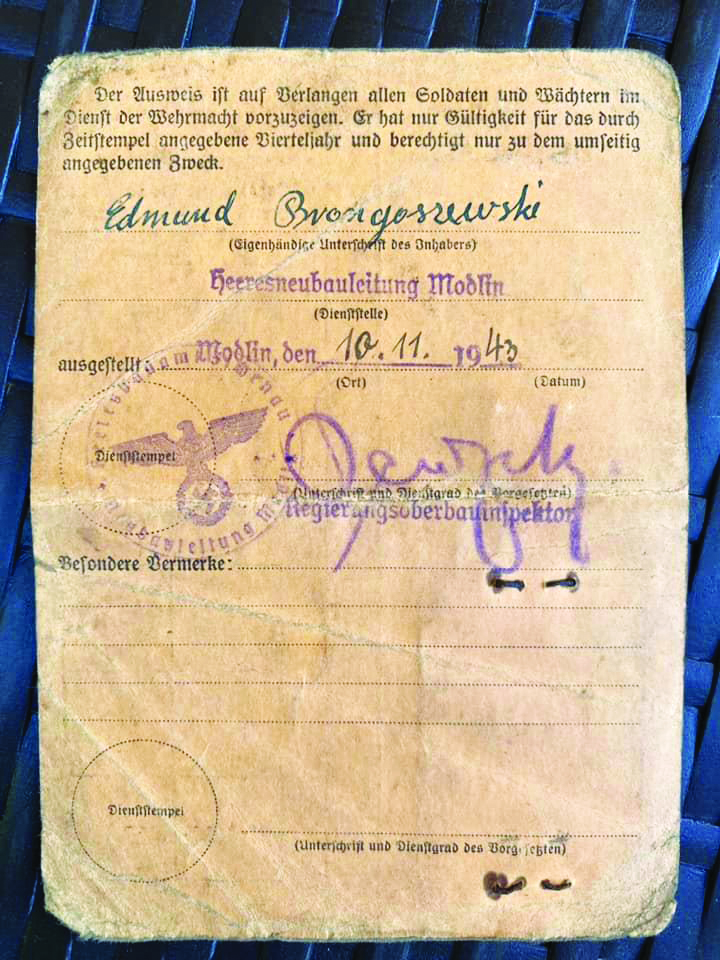 Der Ausweis ist auf Verlangen allen Soldaten und Wächtern im
Dienst der Wehrmacht vorzuzeigen. Er hat nur Gültigkeit für das durch
Zeitstempel angegebene Vierteljahr und berechtigt nur zu dem umseitig
angegebenen Zweck.
Edmund Brongoszewski
(Eigenhändige Unterschrift des Inhabers)
Heeresneubauleitung Modlin
(Dienststelle)
ausgestellt: Modlin, den 10.11. 1943
(Ort) (Datum)
Dienststempel
(Unterschrift und Dienstgrad des Vorgesetzten)
Regierungsoberbauinspektor
Besondere Vermerke:
Dienststempel
(Unterschrift und Dienstgrad des Vorgesetzten)